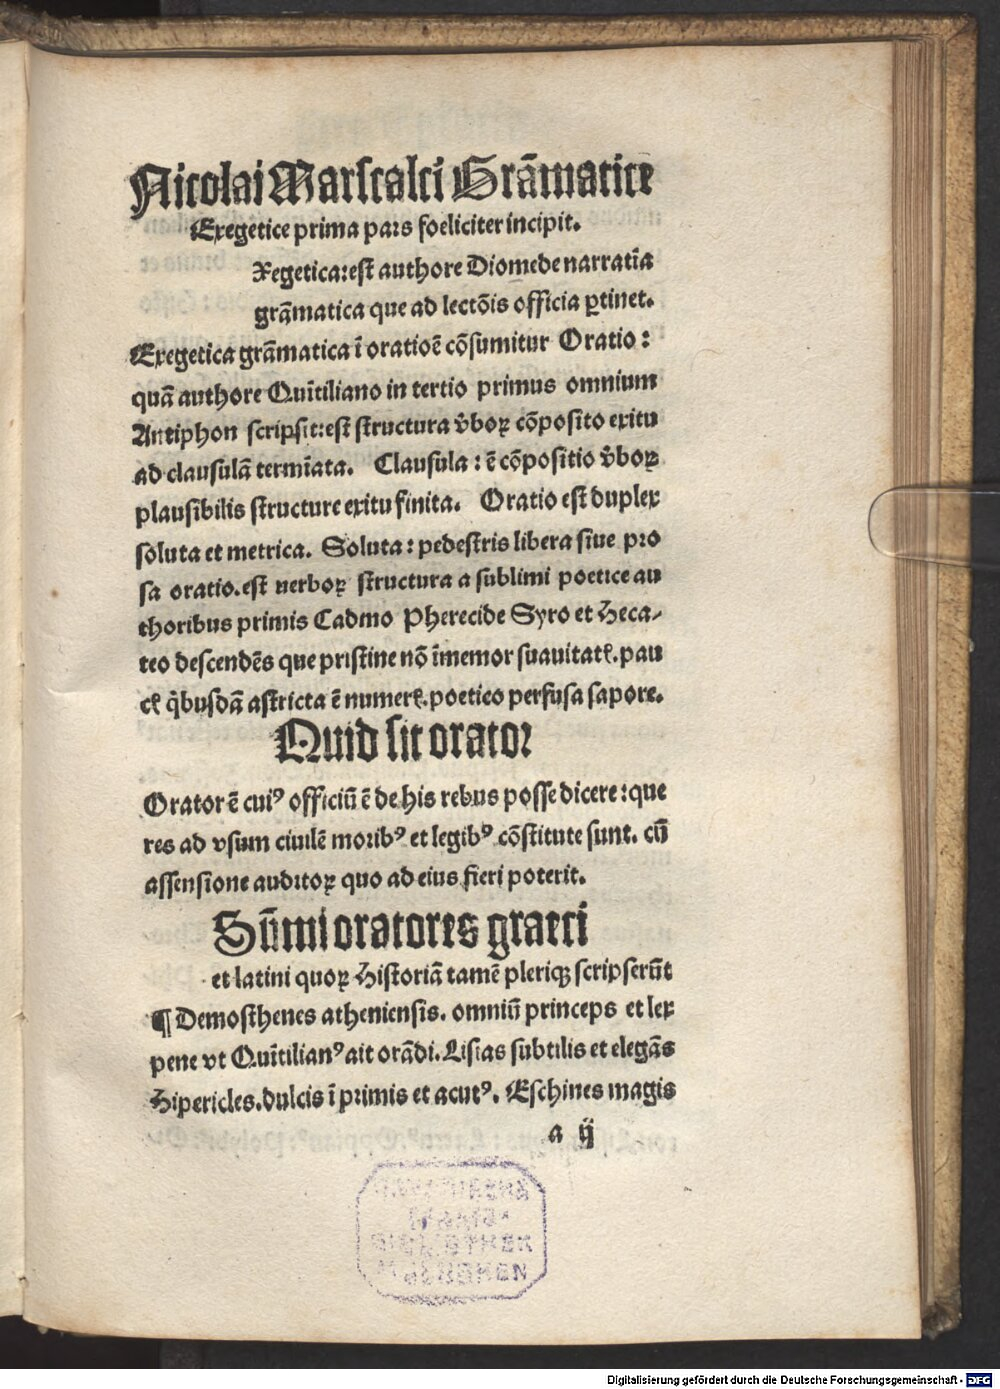 Nicolai Marscalci Grãmatice
Exegetice prima pars foeliciter incipit.
Xegetica: est authore Diomede narratĩa
grãmatica que ad lectõis officia ꝑtinet.
Exegetica grãmatica ĩ oratioẽ cõsumitur Oratio:
quã authore Quĩtiliano in tertio primus omnium
Antiphon scripsit: est structura v̂boꝝ cõposito exitu
ad clausulã termĩata. Clausula: ẽ cõpositio v̂boꝝ
plausibilis structure exitu finita. Oratio est duplex
soluta et metrica. Soluta: pedestris libera siue pro
sa oratio. est uerboꝝ structura a sublimi poetice au
thoribus primis Cadmo Pherecide Syro et Heca-
teo descendẽs que pristine nõ ĩmemor suauitatꝭ. pau
cꝭ q̃busdã astricta ẽ numerꝭ. poetico perfusa sapore.
Quid sit orator
Orator ẽ cuiꝰ officiũ ẽ de his rebus posse dicere: que
res ad vsum ciuilẽ moribꝰ et legibꝰ cõstitute sunt. cũ
assensione auditoꝝ quo ad eius fieri poterit.
Sũmi oratores graeci
et latini quoꝝ Historiã tamẽ pleriqꝫ scripserũt
¶ Demosthenes atheniensis. omniũ princeps et lex
pene vt Quĩtilianꝰ ait orãdi. Lisias subtilis et elegãs
Hipericles. dulcis ĩ primis et acutꝰ. Eschines magis
a ij
Digitalisierung gefördert durch die Deutsche Forschungsgemeinschaft - DFG